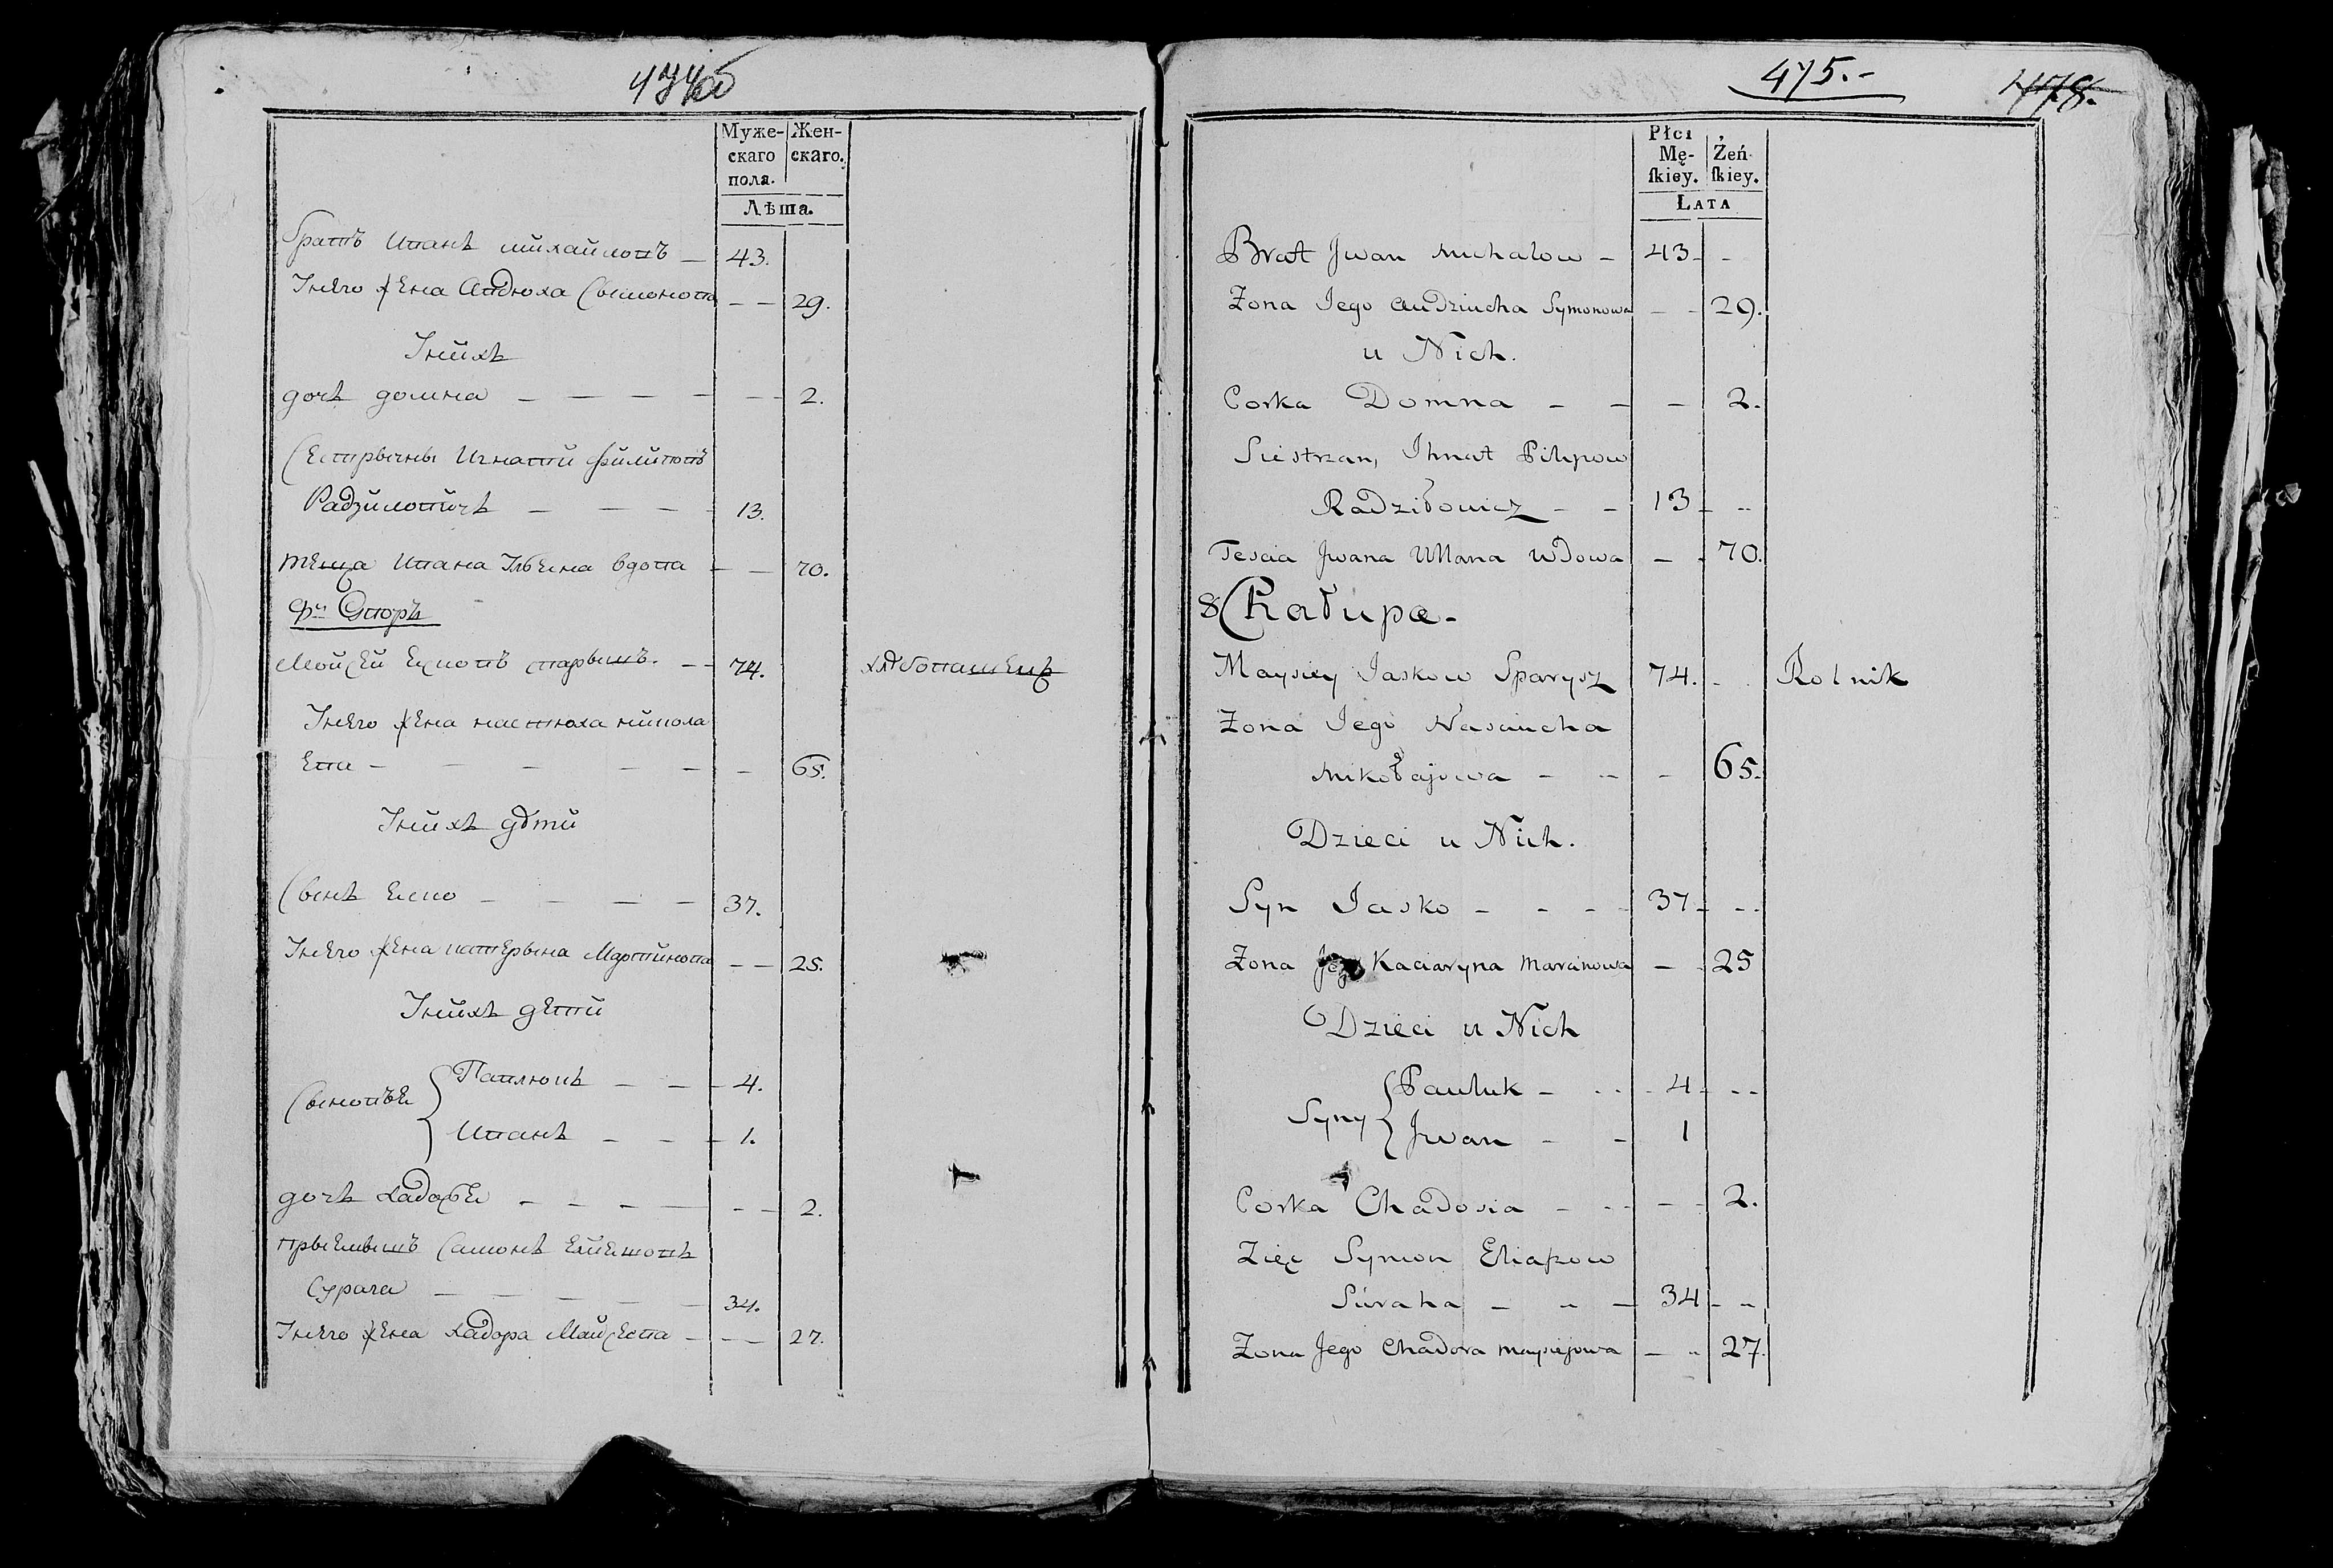 474об
Муже-
скаго
пола.
Жен-
скаго.
Лѣта.
братъ Иванъ михайловъ 43.
Унего жена Авдюха Сымонова 29.
Унихъ
дочь домна 2.
Сестрычны Игнатий Филиповъ
Радзиловичъ 13.
теща Ивана Ульяна вдова 70.
Мойсей 74. хлѣбопашецъ
Унего жена настюха никола
ева 65.
Унихъ дѣти
Сынъ Еско 37.
Унего жена катерына Мартинова 25.
Унихъ дети
Сыновья { Павлюкъ 4.
Иванъ 1.
дочь 2.
Сурага 34.
Унего жена хадора Майсеева 27.
475.-
478.
Płci
Mę-
ſkiey.
Żeń
ſkiey.
Lata
Brat Jwan Michalow - 43 -
Zona Jego Audziucha Symonowa - - 29.
u Nich.
Corka Domna - - - 2.
Siestrzan, Ihnat Pilipow
Radziłowicz - - 13 - -
Tescia Jwana Ullana Wdowa - - 70.
8 Chałupa.
Maysiey Jaskow Sparysz 74. - Rolnik
Zona Jego Nasciucha
Mikołajowa - - - 65.
Dzieci u Nich.
Syn Jasko - - - 37 - -
Zona Jego Kaciaryna Marcinowa - - 25
Dzieci u Nich
Syny { Pauluk - - 4 - -
Jwan - - 1
Corka Chadosia - - - 2.
Zięć Symon Eliaszow
Suraha - - - 34 - -
Zona Jego Chadora Maysiejowa - - 27.